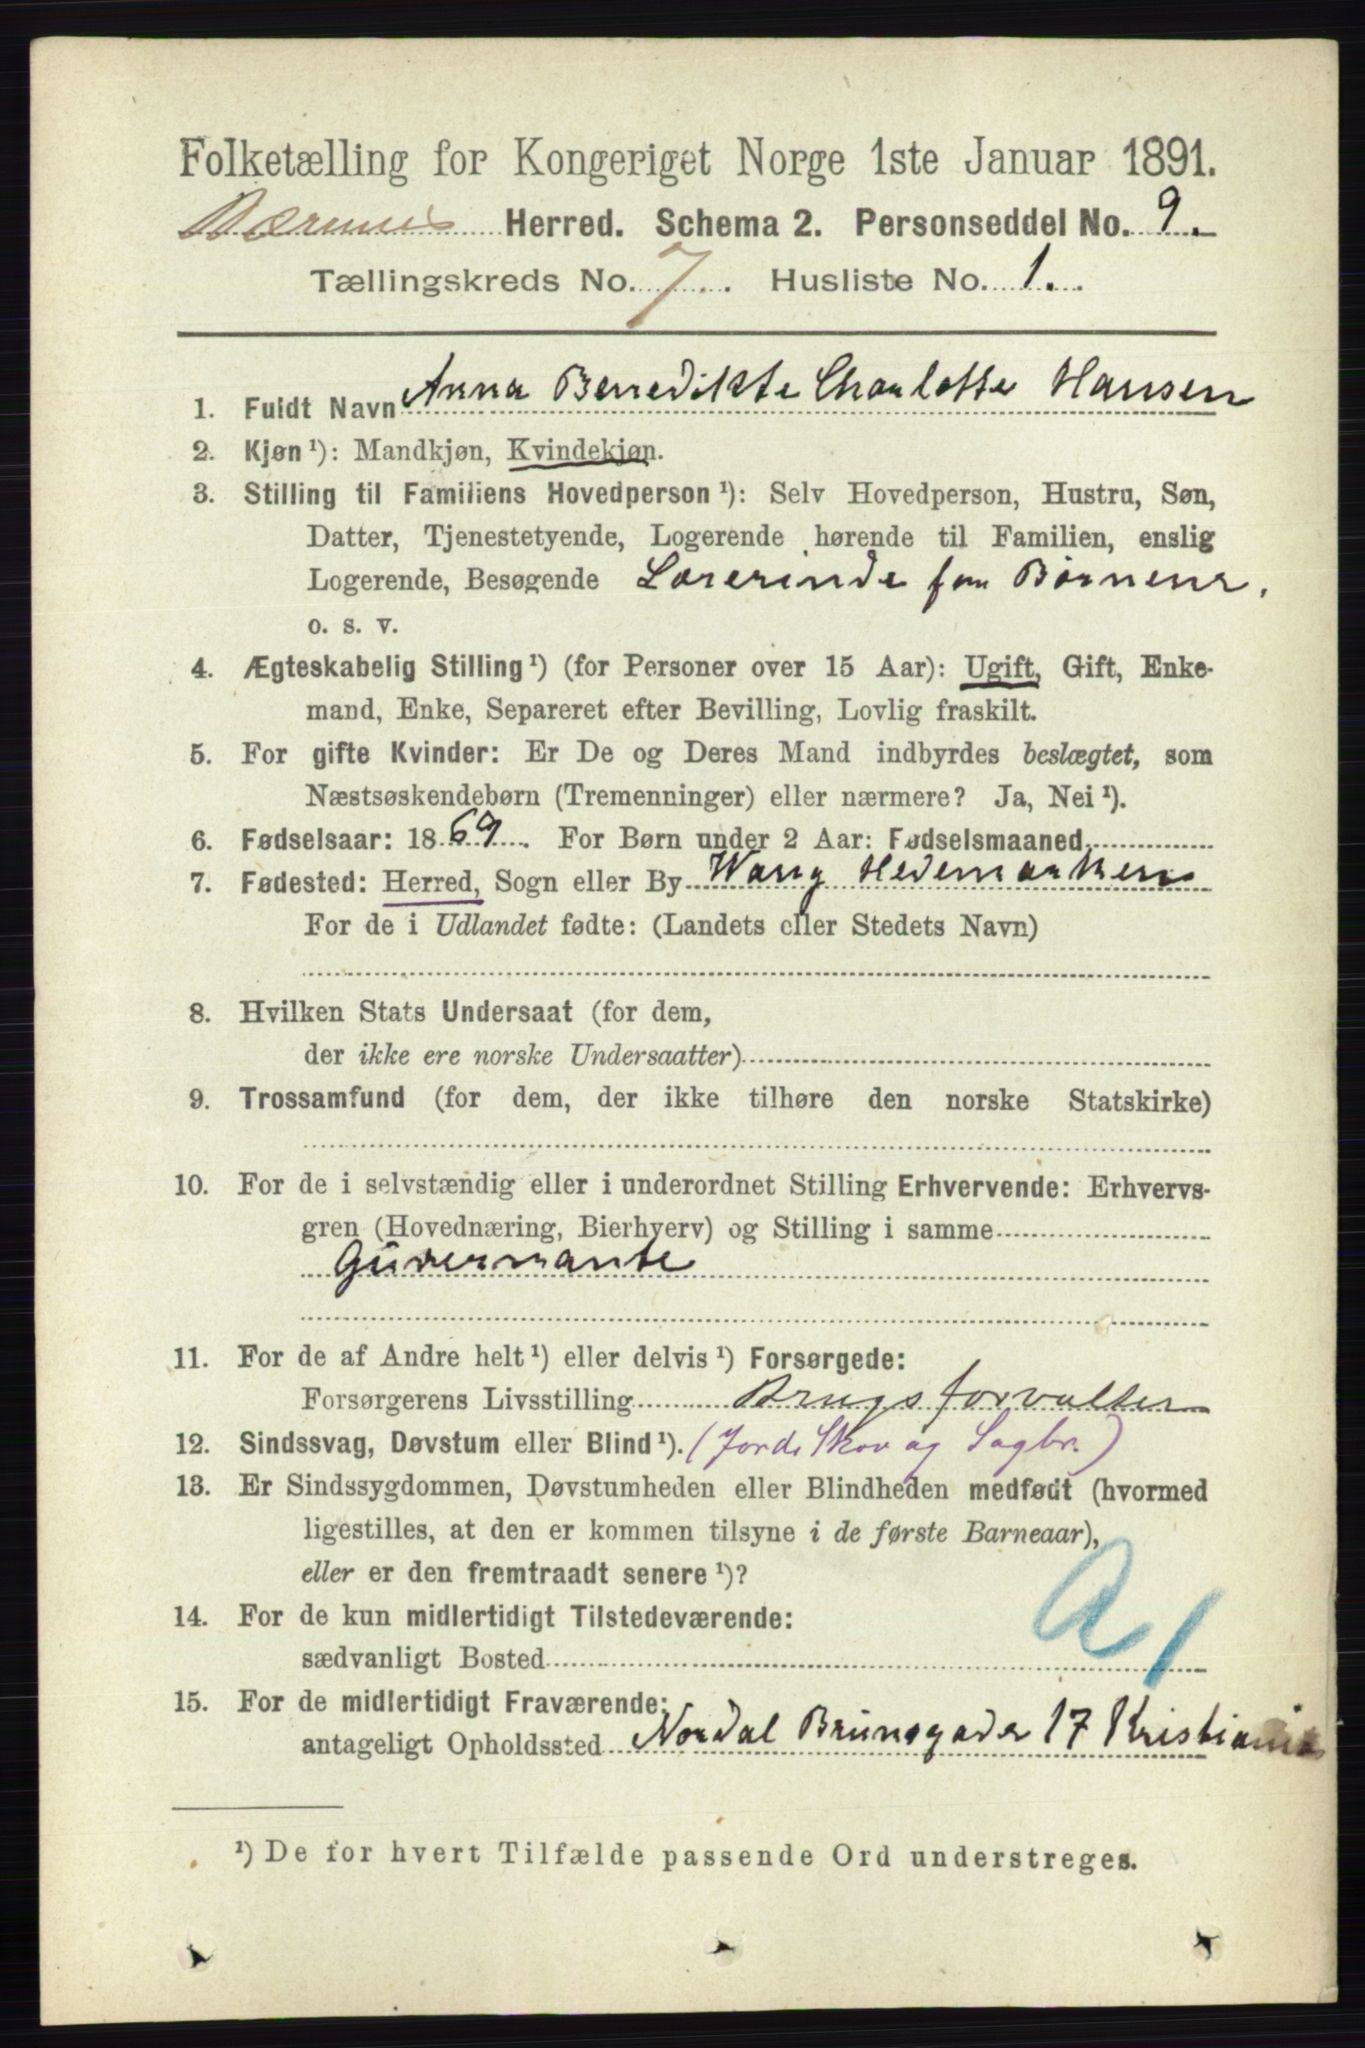 Folketælling for Kongeriget Norge 1ste Januar 1891.
Bærums Herred. Schema 2. Personseddel No. 9.
Tællingskreds No. 7. Husliste No. 1.
1. Fuldt Navn Anna Benedikte Charlotte Hansen
2. Kjøn ¹): Mandkjøn, Kvindekjøn.
3. Stilling til Familiens Hovedperson ¹): Selv Hovedperson, Hustru, Søn,
Datter, Tjenestetyende, Logerende hørende til Familien, enslig
Logerende, Besøgende Lærerinde for Børnene.
o. s. v.
4. Ægteskabelig Stilling ¹) (for Personer over 15 Aar): Ugift, Gift, Enke-
mand, Enke, Separeret efter Bevilling, Lovlig fraskilt.
5. For gifte Kvinder: Er De og Deres Mand indbyrdes beslægtet, som
Næstsøskendebørn (Tremenninger) eller nærmere? Ja, Nei ¹).
6. Fødselsaar: 1869. For Børn under 2 Aar: Fødselsmaaned
7. Fødested: Herred, Sogn eller By Wang Hedemarken
For de i Udlandet fødte: (Landets eller Stedets Navn)
8. Hvilken Stats Undersaat (for dem,
der ikke ere norske Undersaatter)
9. Trossamfund (for dem, der ikke tilhøre den norske Statskirke)
10. For de i selvstændig eller i underordnet Stilling Erhvervende: Erhvervs-
gren (Hovednæring, Bierhverv) og Stilling i samme
Guvernante
11. For de af Andre helt ¹) eller delvis ¹) Forsørgede:
Forsørgerens Livsstilling Brugsforvalter
12. Sindssvag, Døvstum eller Blind ¹). (Jord. Skov og Sagbr.)
13. Er Sindssygdommen, Døvstumheden eller Blindheden medfødt (hvormed
ligestilles, at den er kommen tilsyne i de første Barneaar),
eller er den fremtraadt senere ¹)?
A 1
14. For de kun midlertidigt Tilstedeværende:
sædvanligt Bosted
15. For de midlertidigt Fraværende:
antageligt Opholdssted Nordal Brunsgade 17 Kristiania
¹) De for hvert Tilfælde passende Ord understreges.